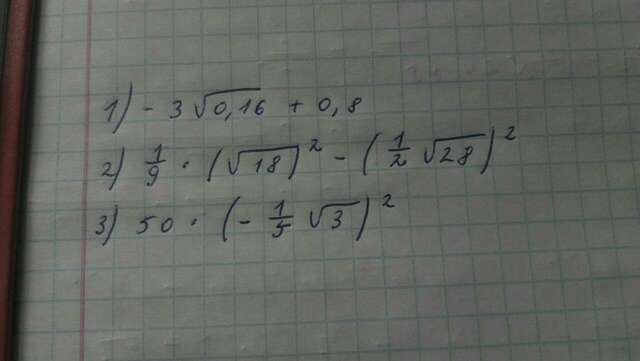 1) - 3 √0,16 + 0,8
2) 1/9 · (√18)² - (1/2 √28)²
3) 50 · (- 1/5 √3)²